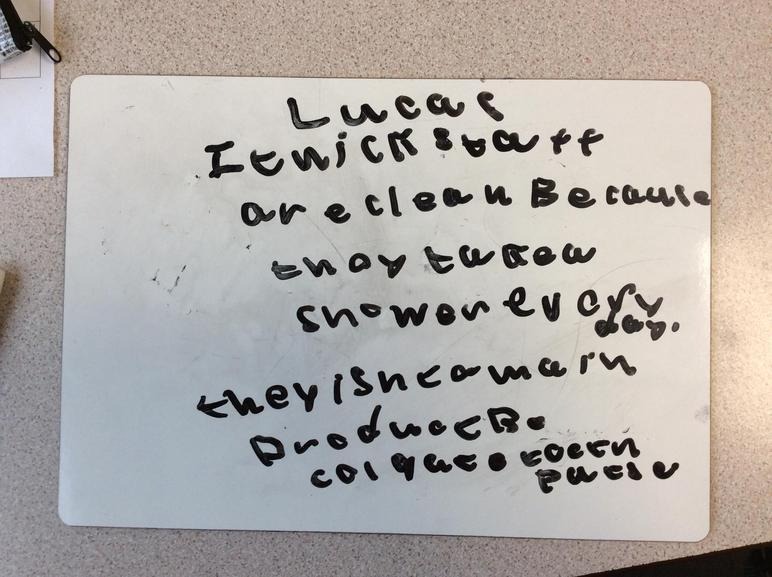 Lucas
I thick staff
are clean Because
they take a
shower every
day.
they ishta main
product Be
colgate toeth
paste